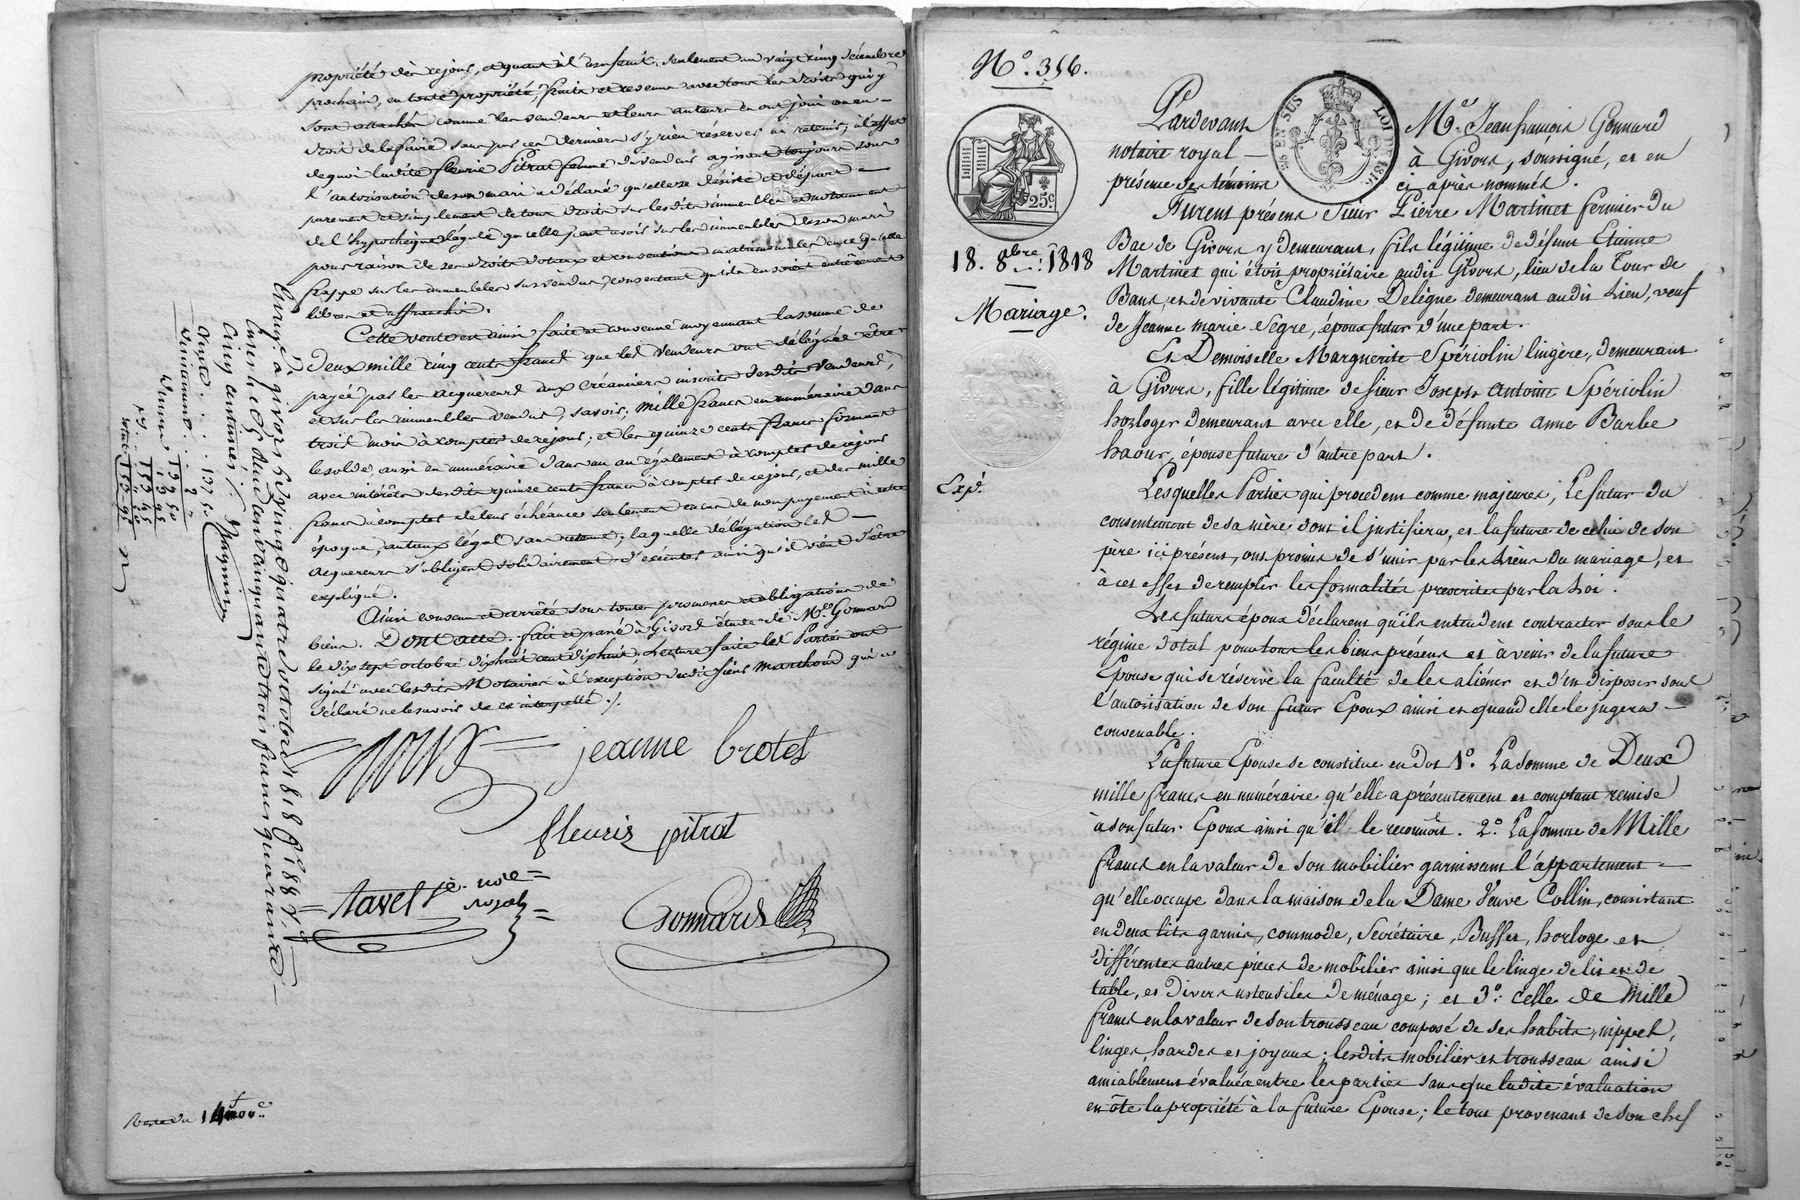 propriété dès ce jour, et quant à l'usufruit, seulement au vingt cinq décembre
prochain, en toute propriété, fruits et revenus avec tous les droits qui y
sont attachés comme les vendeurs et leurs auteurs en ont joui ou eu
droit de le faire sans par ces derniers s'y rien réserver ni retenir; à l'effet
de quoi ladite fleurie Pitrat femme du vendeur agissant toujours sous
l'autorisation de son mari a déclaré qu'elle se désiste et départ
purement et simplement de tous droits sur lesdits immeubles et notamment
de l'hypothèque légale qu'elle peut avoir sur les immeubles de son mari
pour raison de ses droits dotaux et conventions matrimoniales en ce qu'elle
frappe sur les immeubles sus vendus, consentant qu'ils en soient entièrement
libres et affranchis.
Cette vente est ainsi faite et convenue moyennant la somme de
Deux mille cinq cents francs que les vendeurs ont déléguée être
payée par les acquéreurs aux créanciers inscrits desdits vendeurs,
et sur les immeubles vendus, savoir; mille francs en numéraire dans
trois mois à compter de ce jour; et les quinze cents francs formant
le solde aussi en numéraire dans un an également à compter de ce jour
avec intérêts desdits quinze cents francs à compter de ce jour, et des mille
francs à compter de leur échéance seulement en cas de non payement à cette
époque, au taux légal sans retenue; laquelle délégation les
acquéreurs s'obligent solidairement d'exécuter ainsi qu'il vient d'être
expliqué.
Ainsi convenu et arrêté sous toutes promesses et obligations de
biens. Dont acte. fait et passé à Givors étude de Me. Gonnard
le dix sept octobre dix huit cent dix huit. Lecture faite les Parties ont
signé avec lesdits Notaires à l'exception dudit Siens Marthoud qui a
déclaré ne le savoir de ce interpellé ./.
jeanne brotet
fleuris pitrat
tavel
nore
royal
Gonnard
Enreg. à givors le vingt quatre octobre 1818
cinq centimes
Vente 137 50
N°. 356.
Pardevant Me. Jean françois Gonnard
notaire royal à Givors, soussigné, et en
présence des témoins ci après nommés.
25c
18. 8bre. 1818
Mariage.
Furent présens Sieur Pierre Martinet fermier du
Bac de Givors y demeurant, fils légitime de défunt Etienne
Martinet qui étoit propriétaire audit Givors, lieu de la Tour de
Bans, et de vivante Claudine Delègue demeurant audit Lieu, veuf
de Jeanne marie Segre, époux futur d'une part.
Et Demoiselle Marguerite Spériolin lingère, demeurant
à Givors, fille légitime de sieur Joseph Antoine Spériolin
horloger demeurant avec elle, et de défunte anne Barbe
haour, épouse future d'autre part.
Expé.
Lesquelles Parties qui procedent comme majeures, Le futur du
consentement de sa mère dont il justifiera, et la future de celui de son
père ici présent, ont promis de s'unir par les liens du mariage, et
à cet effet de remplir les formalités prescrites par la Loi.
Les futurs époux déclarent qu'ils entendent contracter sous le
régime dotal pour tous les biens présens et à venir de la future
Epouse qui se réserve la faculté de les aliéner et d'en disposer sous
l'autorisation de son futur Epoux ainsi et quand elle le jugera
convenable.
La future Epouse se constitue en dot 1°. La somme de Deux
mille francs en numéraire qu'elle a présentement et comptant remise
à son futur Epoux ainsi qu'il le reconnoit. 2°. La somme de Mille
francs en la valeur de son mobilier garnissant l'appartement
qu'elle occupe dans la maison de la Dame Veuve Collin, consistant
en deux lits garnis, commode, Secrétaire, Buffet, horloge et
différentes autres pièces de mobilier ainsi que le linge de lit et de
table, et divers ustensiles de ménage; et 3°. celle de Mille
francs en la valeur de son trousseau composé de ses habits, nippes,
linges, hardes et joyaux; lesdits mobilier et trousseau ainsi
amiablement évalués entre les parties sans que ladite évaluation
en ôte la propriété à la future Epouse; le tout provenant de son chef